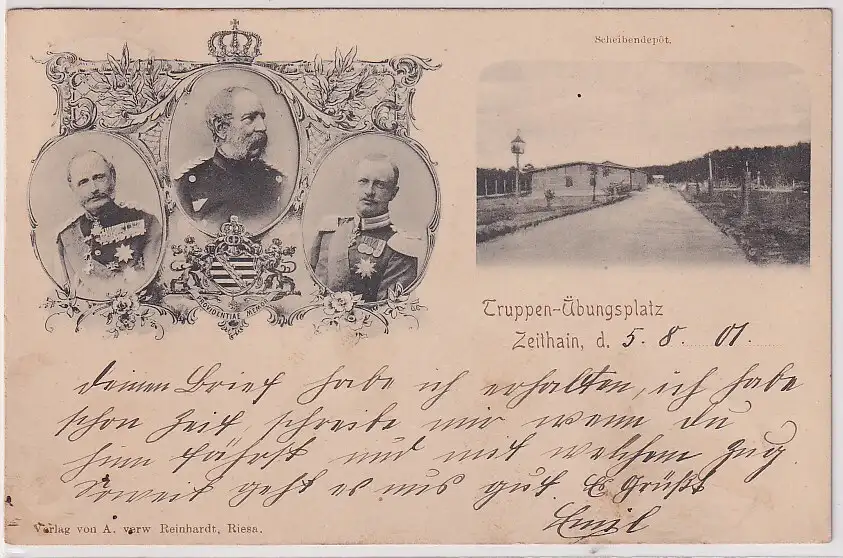 Scheibendepôt.
PROVIDENTIAE MEMOR
Truppen-Übungsplatz
Zeithain, d. 5. 8. 01.
deinen Brief habe ich erhalten, ich habe
schon Zeit, schreibe mir wenn du
fährst und mit welchem Zug.
Soweit geht es uns gut. Es Grüßt
Emil
Verlag von A. verw Reinhardt, Riesa.